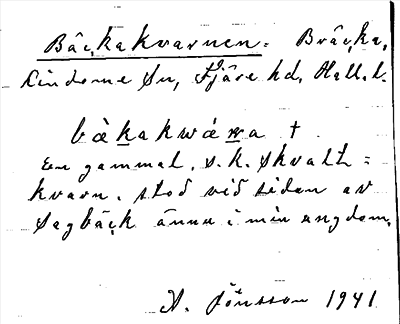 Bäckakvarnen. Bräcka,
Lindome sn, Fjäre hd, Hall. l.
bàkakwána †
En gammal, s. k. skvalt=
kvarn. stod vid sidan av
Sagbäck ännu i min ungdom.
A. Jönsson 1941